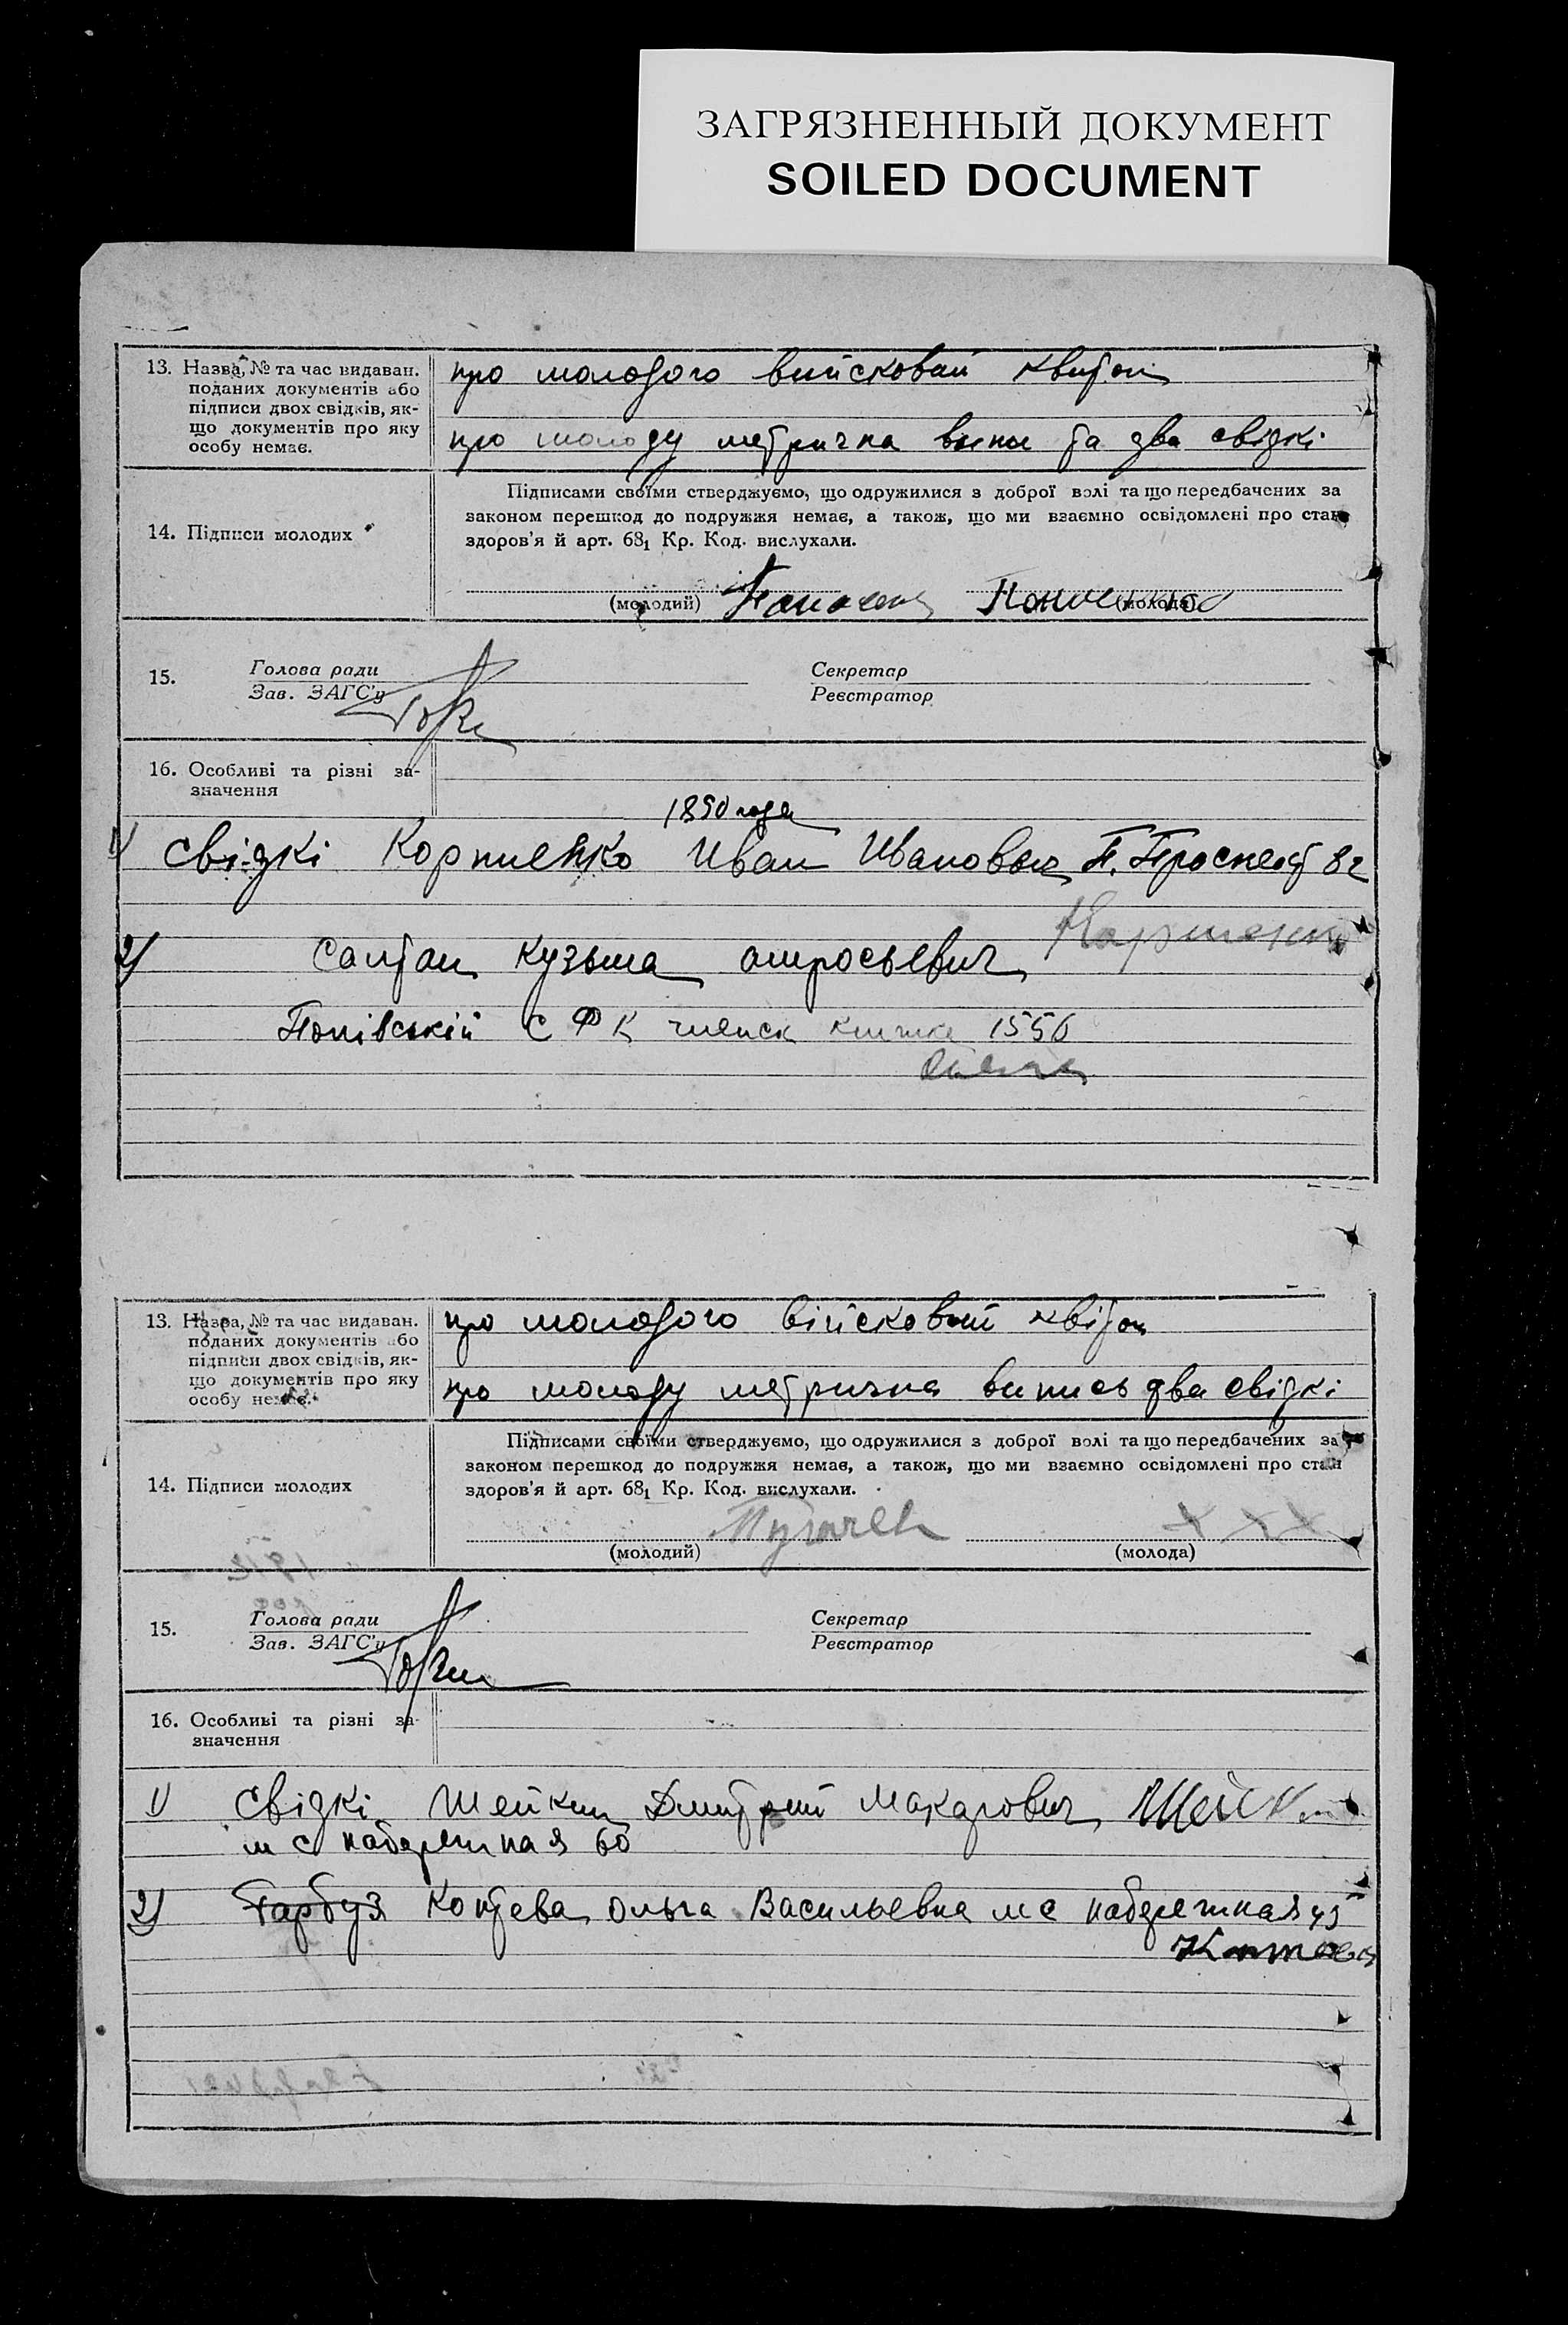 ЗАГРЯЗНЕННЫЙ ДОКУМЕНТ
SOILED DOCUMENT
13. Назва, № та час видаван.
поданих документів або
підписи двох свідків, як-
що документів про яку
особу немає.
про молодого вийсковий квиток
про молоду метрична випис та два свідкі
14. Підписи молодих
Підписами своїми стверджуємо, що одружилися з доброї волі та що передбачених за
законом перешкод до подружжя немає, а також, що ми взаємно освідомлені про стан
здоров'я й арт. 68₁ Кр. Код. вислухали.
(молодий) (молода)
15. Голова ради Секретар
Зав. ЗАГС'у Реєстратор
16. Особливі та різні за-
значення
1890 года
1) Свідкі Корниенко Иван Иванович П. Проспект 82
2) Салтан Кузьма
Попівській С Ф К членск книжка 1556
13. Назва, № та час видаван.
поданих документів або
підписи двох свідків, як-
що документів про яку
особу немає.
про молодого війсковий квіток
про молоду метрична випись два свідкі
14. Підписи молодих
Підписами своїми стверджуємо, що одружилися з доброї волі та що передбачених за
законом перешкод до подружжя немає, а також, що ми взаємно освідомлені про стан
здоров'я й арт. 68₁ Кр. Код. вислухали.
Пугачев ХХХ
(молодий) (молода)
15. Голова ради Секретар
Зав. ЗАГС'у Реєстратор
16. Особливі та різні за-
значення
1) Свідкі Шейкин Дмитрий Макарович
м с набережная 60
2) Гарбуз Коптева Ольга Васильевна м с набережная 45